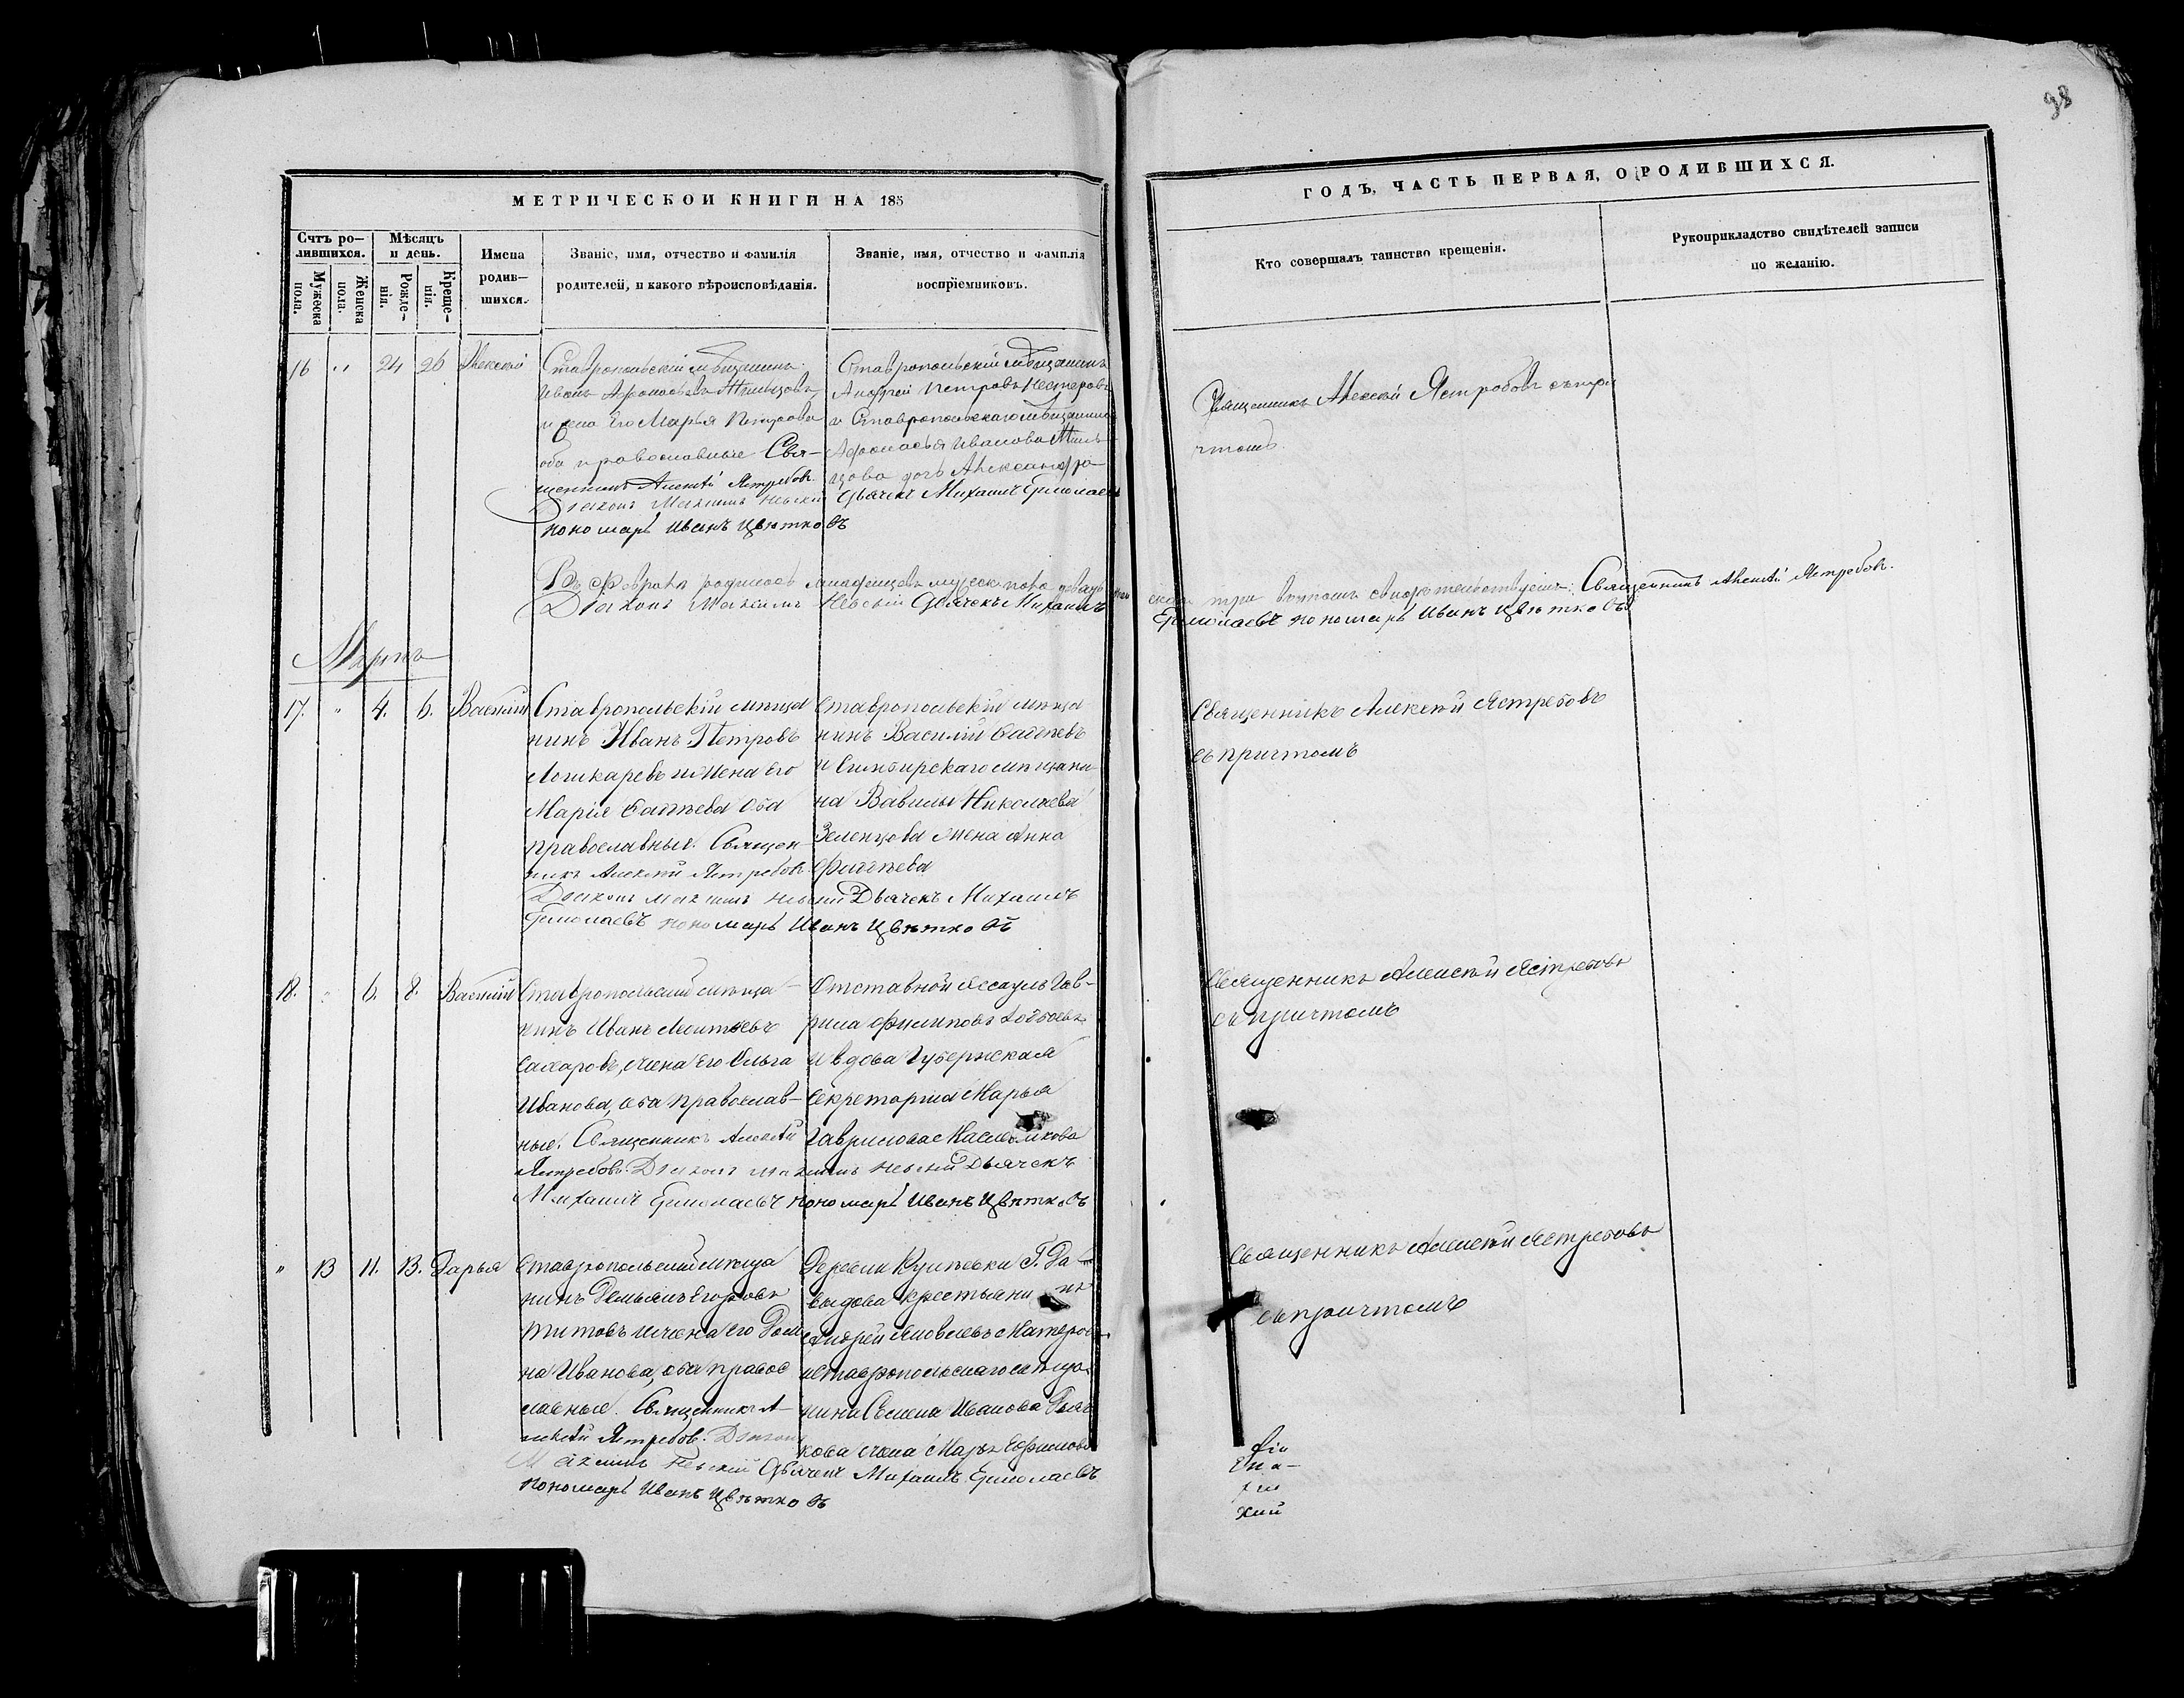 38
МЕТРИЧЕСКОЙ КНИГИ НА 185
ГОДЪ, ЧАСТЬ ПЕРВАЯ, О РОДИВШИХСЯ.
Счтъ ро-
лившихся.
Мужеска
пола.
Женска
пола.
Мѣсяцъ
и день.
Рожде-
нія.
Креще-
нія.
Имена
родив-
шихся.
Званіе, имя, отчество и фамилія
родителей, и какого вѣроисповѣданія.
Званіе, имя, отчество и фамилія
воспріемниковъ.
Кто совершалъ таинство крещенія.
Рукоприкладство свидѣтелей записи
по желанію.
16 " 24 26 Алексѣй
Ставропольскій мѣщанинъ
Иванъ
и жена Его Марья Петрова
оба православные Свя-
щенникъ Алексѣй Ястребовъ
Діаконъ Максимъ Невскій
пономарь Иванъ Цвѣтковъ
Ставропольскій мѣщанинъ
Андрей Петровъ Нестеровъ
и Ставропольскаго мѣщанина
Афонасья Иванова
дочь Александра
Дьячекъ Михаилъ Ермолаевъ
Священникъ Алексѣй Ястребовъ съ при
чтомъ.
Въ Февралѣ родилось младенцевъ мужеска пола
три въ томъ свидѣтельствуемъ: Священникъ Алексѣй Ястребовъ.
Діаконъ Максимъ Невскій Дьячекъ Михаилъ
Ермолаевъ пономарь Иванъ Цвѣтковъ
Мартъ
17. " 4. 6. Василій
Ставропольскій мѣща
нинъ Иванъ Петровъ
Лошкаревъ и жена Его
Марія Фадѣева оба
православные. Священ-
никъ Алексѣй Ястребовъ
Діаконъ Максимъ Невскій Дьячекъ Михаилъ
Ермолаевъ пономарь Иванъ Цвѣтковъ
Ставропольскій мѣща
нинъ Василій Фадѣевъ
и Симбирскаго мѣщани-
на Вавилы Николаева
Зеленцова жена Анна
Фадѣева
Священникъ Алексѣй Ястребовъ
съ причтомъ
18. " 6. 8. Василій
Ставропольскій мѣща-
нинъ Иванъ Леонтьевъ
Сахаровъ, жена его Ольга
Иванова, оба православ-
ные. Священникъ Алексѣй
Ястребовъ Діаконъ Максимъ Невскій Дьячекъ
Михаилъ Ермолаевъ пономарь Иванъ Цвѣтковъ
Отставной Ясаулъ Гав-
рила Филиповъ
и вдова Губернская
Секретарша Марья
Гаврилова Масленикова
Священникъ Алексѣй Ястребовъ
съ причтомъ
" 13 11. 13. Дарья
Ставропольскій мѣща
нинъ Демьянъ Егоровъ
Титовъ и жена его Дом
на Иванова, оба правос
лавные. Священникъ А-
лексѣй Ястребов. Діаконъ
Максимъ Невскій Дьячекъ Михаилъ Ермолаевъ
пономарь Иванъ Цвѣтковъ
Деревни Г. Да-
выдова крестьянинъ
Андрей Яковлевъ
и Ставропольскаго мѣща-
нина Семена Иванова
кова жена Марья Ефимова
Священникъ Алексѣй Ястребовъ
съ причтомъ